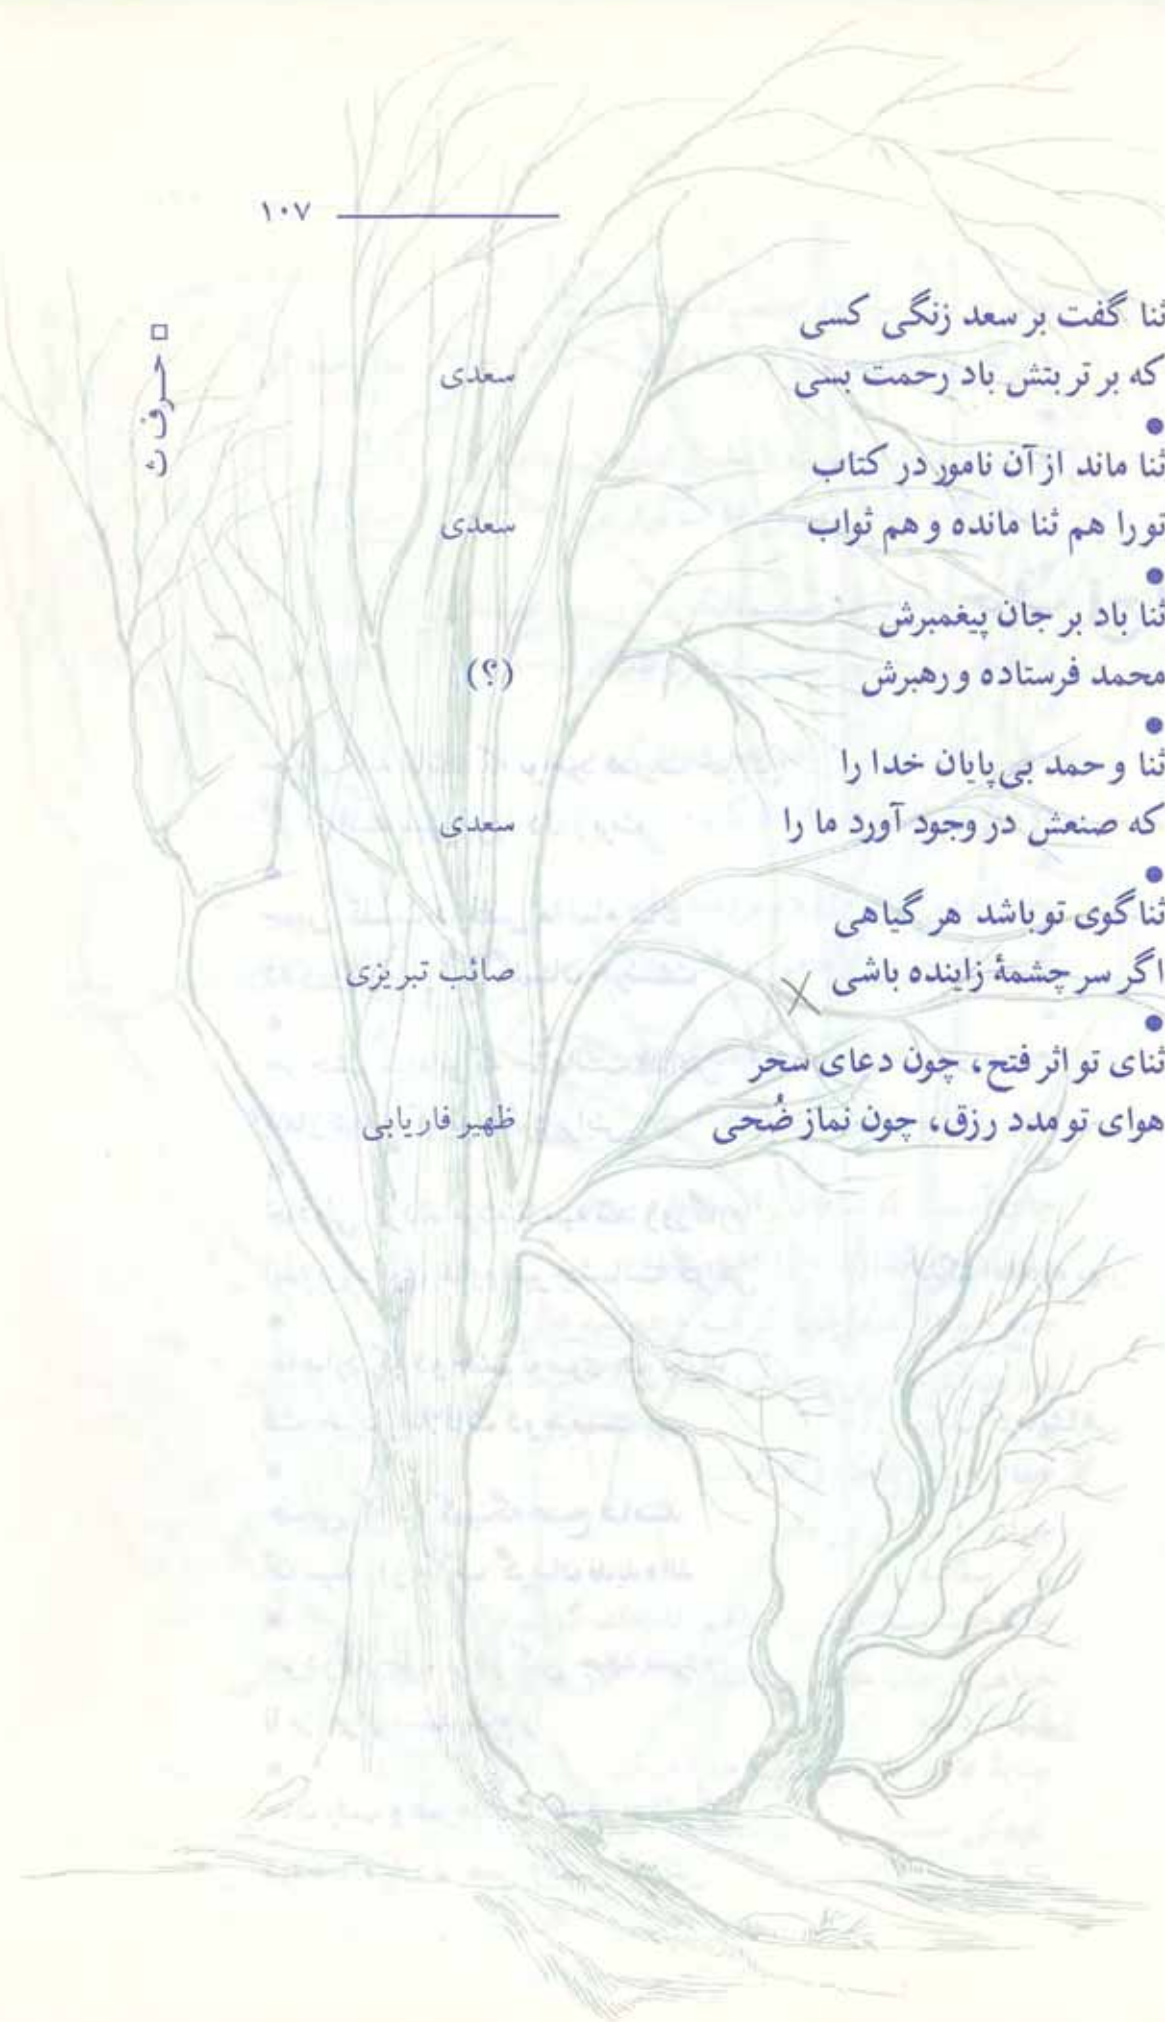 ۱۰۷
□ حرف ث
ثنا گفت بر سعد زنگی کسی
که بر تربتش باد رحمت بسی سعدی
●
ثنا ماند از آن نامور در کتاب
تو را هم ثنا مانده و هم ثواب سعدی
●
ثنا باد بر جان پیغمبرش
محمد فرستاده و رهبرش (؟)
●
ثنا و حمد بی‌پایان خدا را
که صنعش در وجود آورد ما را سعدی
●
ثنا گوی تو باشد هر گیاهی
اگر سر چشمهٔ زاینده باشی صائب تبریزی
●
ثنای تو اثر فتح، چون دعای سحر
هوای تو مدد رزق، چون نماز ضُحی ظهیر فاریابی